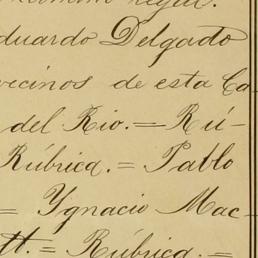 duardo Delgado
vecinos de esta Ca-
del Rio.= Rú-
Rúbrica.= Pablo
= Ygnacio Mac-
tt.= Rúbrica.=